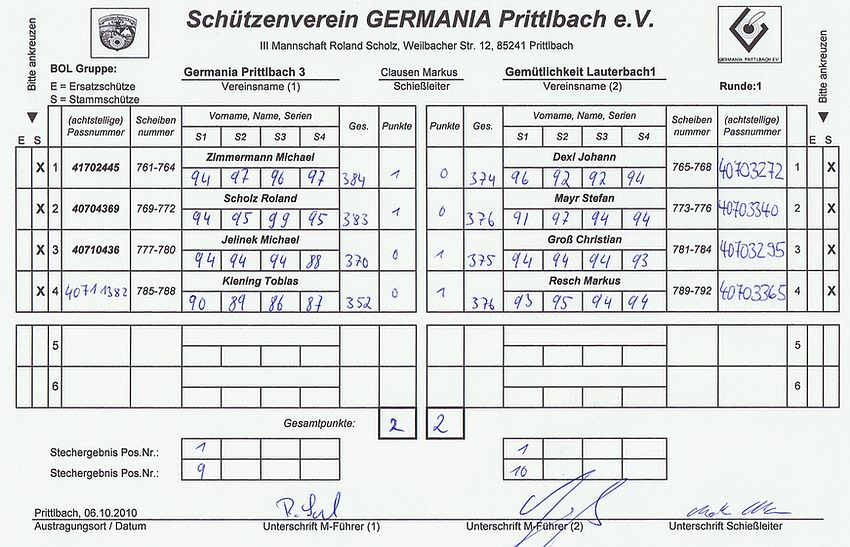 Schützenverein GERMANIA Prittlbach e.V.
III Mannschaft Roland Scholz, Weilbacher Str. 12, 85241 Prittlbach
GERMANIA PRITTLBACH E.V.
Bitte ankreuzen
Bitte ankreuzen
BOL Gruppe:
E = Ersatzschütze
S = Stammschütze
Germania Prittlbach 3 Clausen Markus Gemütlichkeit Lauterbach1
Vereinsname (1) Schießleiter Vereinsname (2) Runde:1
E S (achtstellige) Passnummer Scheiben nummer Vorname, Name, Serien S1 S2 S3 S4 Ges. Punkte Punkte Ges. Vorname, Name, Serien S1 S2 S3 S4 Scheiben nummer (achtstellige) Passnummer E S
Zimmermann Michael Dexl Johann
X 1 41702445 761-764 94 97 96 97 384 1 0 374 96 92 92 94 765-768 40703272 1 X
Scholz Roland Mayr Stefan
X 2 40704369 769-772 94 95 99 95 383 1 0 376 91 97 94 94 773-776 40703340 2 X
Jelinek Michael Groß Christian
X 3 40710436 777-780 94 94 94 88 370 0 1 375 94 94 94 93 781-784 40703295 3 X
Kiening Tobias Resch Markus
X 4 40711382 785-788 90 89 86 87 352 0 1 376 93 95 94 94 789-792 40703365 4 X
5 5
6 6
Gesamtpunkte: 2 2
Stechergebnis Pos.Nr.: 1 1
Stechergebnis Pos.Nr.: 9 10
Prittlbach, 06.10.2010
Austragungsort / Datum Unterschrift M-Führer (1) Unterschrift M-Führer (2) Unterschrift Schießleiter